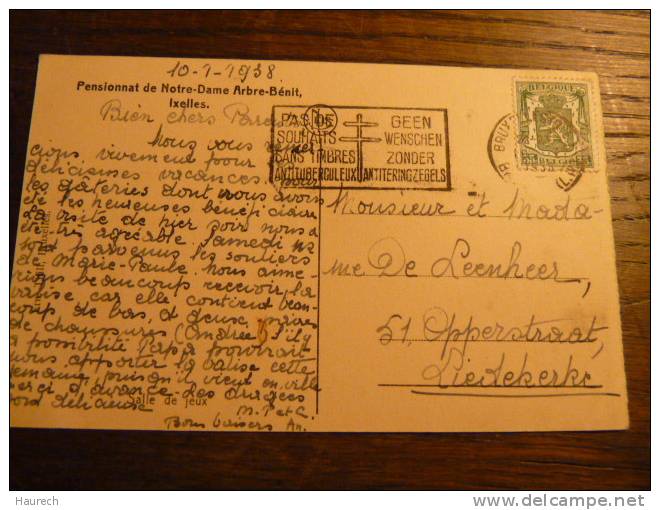 10-1-1938
Pensionnat de Notre-Dame Arbre-Bénit,
Ixelles.
Bien chers Parents
Nous vous remer-
cions vivement pour
délicieuses vacances.
les gâteries dont nous avons
été les heureuses bénéficiaires
La visite de hier soir nous a
été très agréable. Samedi
sont parvenus les souliers
de Marie-Paule. Nous aime-
rions beaucoup recevoir la
valise car elle contient beau-
coup de bas, et deux paires
de chaussures (Andrée) S'il y
a possibilité Papa pourrait
nous apporter la valise cette
semaine, puisqu'il vient en ville
Merci d'avance. Les dragées
sont délicieuses
Salle de jeux
M. P et A.
Bons baisers An.
PAS DE
SOUHAITS
SANS TIMBRES
ANTITUBERCULEUX
GEEN
WENSCHEN
ZONDER
ANTITERINGZEGELS
BELGIQUE
Monsieur et Mada-
me De Leenheer,
51, Opperstraat,
Liedekerke
Haurech
www.delcampe.net